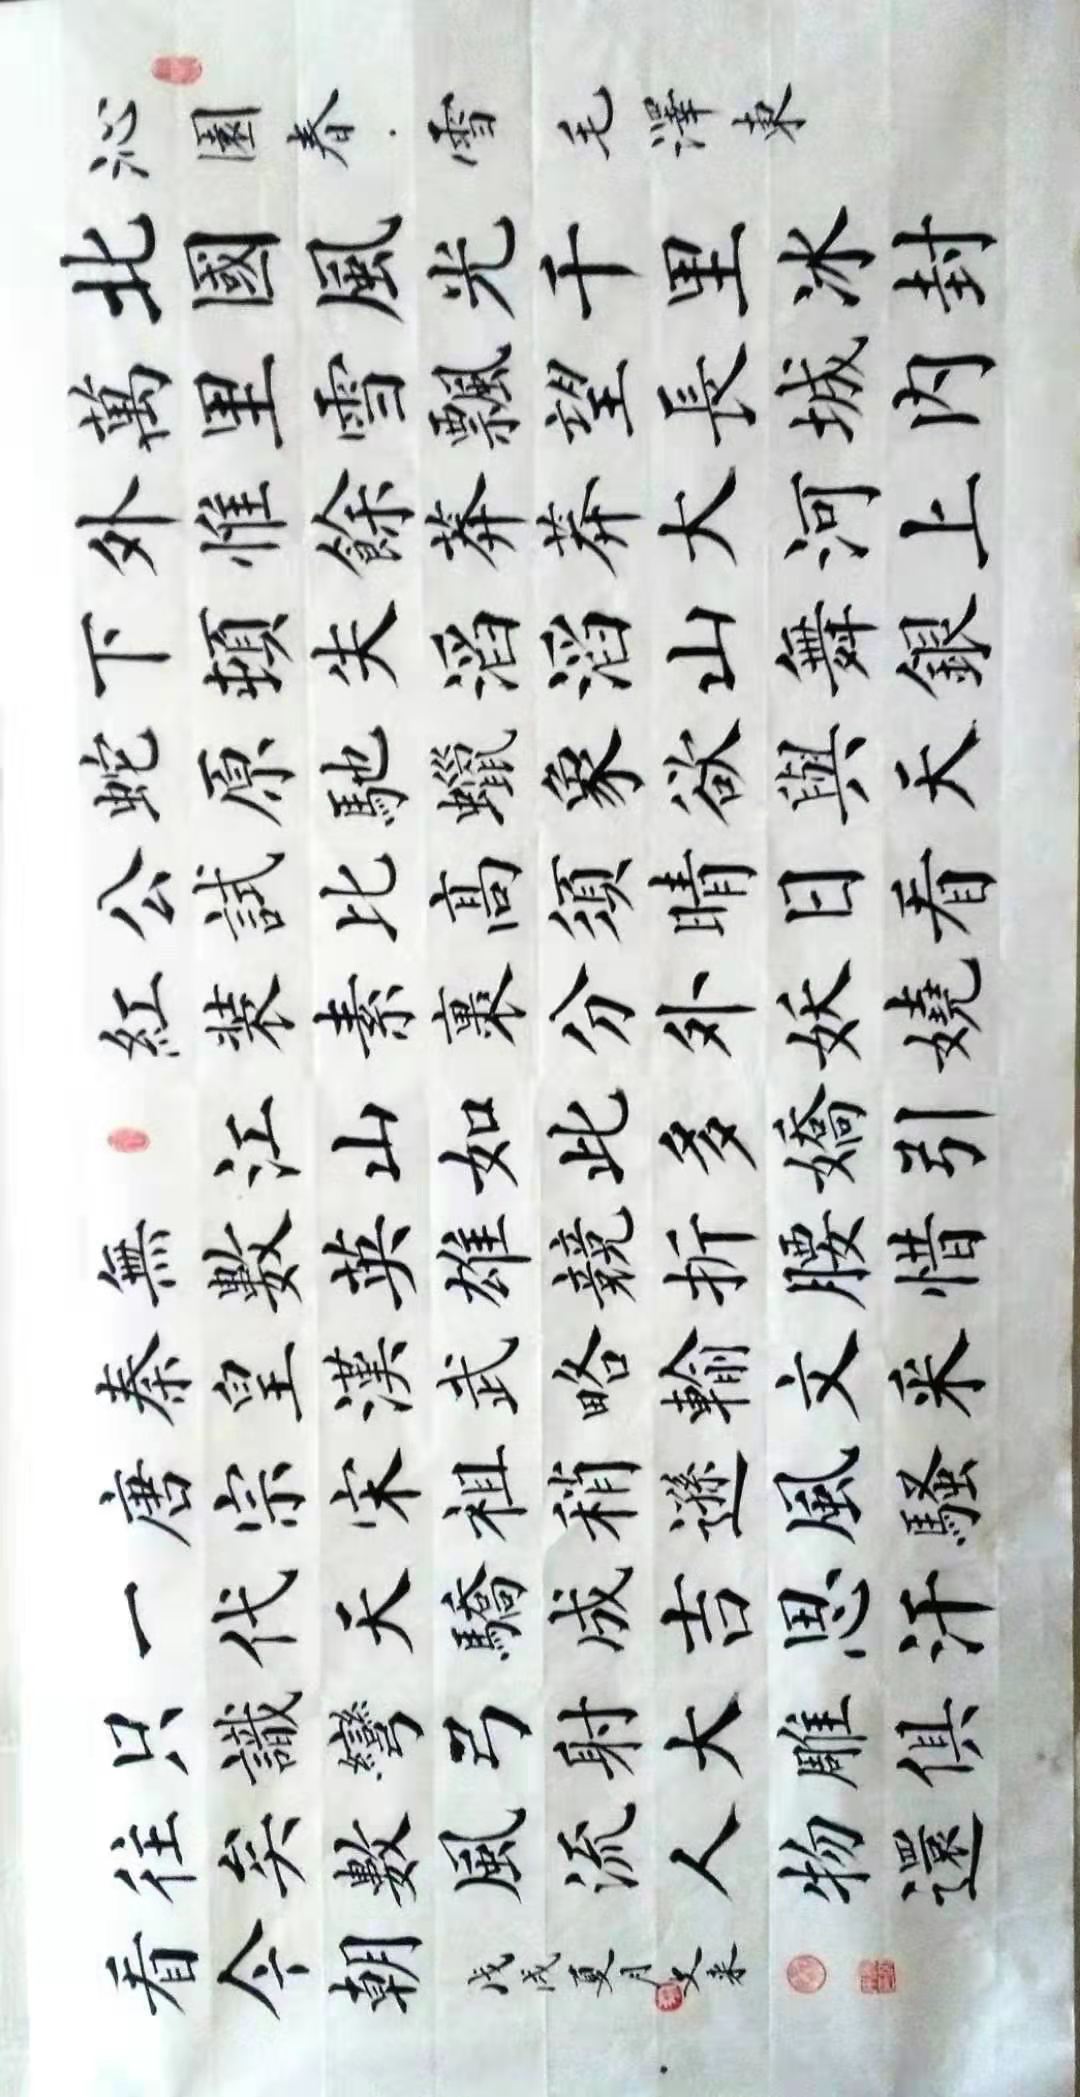 沁園春·雪 毛澤東
北國風光千里冰封
萬里雪飄望長城内
外惟餘莽莽大河上
下頓失滔滔山舞銀
蛇原馳蠟象欲與天
公試比高須晴日看
紅装素裹分外妖嬈
江山如此多嬌引
無數英雄競折腰惜
秦皇漢武略輸文采
唐宗宋祖稍遜風騷
一代天驕成吉思汗
只識彎弓射大雕俱
往矣數風流人物還
看今朝 戊戌夏月文来